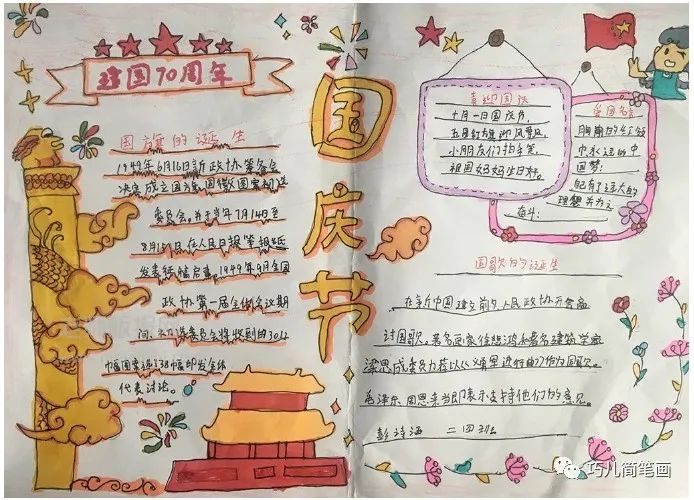 建国70周年
国旗的诞生
1949年6月16日新政协筹备会
决定成立国旗国徽国案初选
委员会.并于当年7月14至
8月15日在人民日报等报纸
发表征稿启事.1949年9月全国
政协第一届全体会议期
间.初选委员会将收到的301
幅国案选38幅印发全体
代表讨论。
国庆节
喜迎国庆
十月一日国庆节
五星红旗迎风飘
小朋友们拍手笑
祖国妈妈生日到
爱国名言
胸前的红领
巾永远的中
国梦:
已有了远大的
理想并为之
奋斗:
国歌的诞生
在新中国建立前夕.人民政协开会商
讨国歌.著名画家徐悲鸿和著名建筑学家
梁思成委员力荐以《义勇军进行曲》作为国歌.
毛泽东.周恩来当即表示支持他们的意见.
彭诗涵 二四班
巧儿简笔画